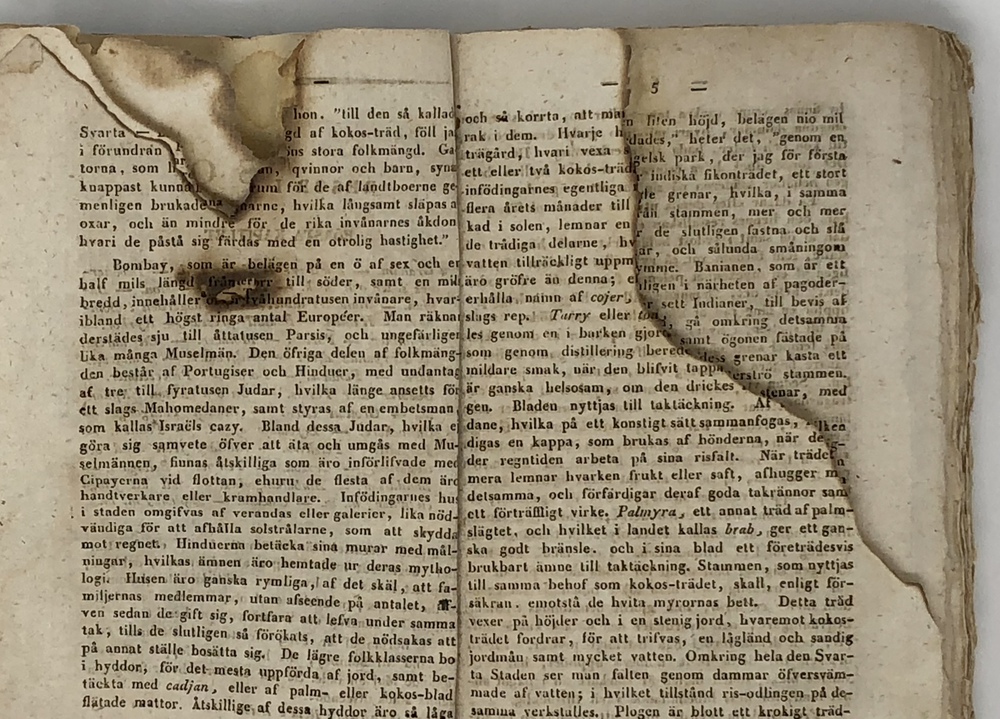 hon. "till den så kallad
Svarta — gd af kokos-träd, föll ja
i förundran öns stora folkmängd. Ga
torna, som qvinnor och barn, syn
knappast kunna rum för de af landtboerne ge
menligen brukade na kärne, hvilka långsamt släpas a
oxar, och än mindre för de rika invånarnes åkdon
hvari de påstå sig färdas med en otrolig hastighet."
Bombay, som är belägen på en ö af sex och en
half mils längd från norr till söder, samt en mil
bredd, innehåller tvåhundratusen invånare, hvar
ibland ett högst ringa antal Européer. Man räkna
derstädes sju till åttatusen Parsis, och ungefärligen
lika många Muselmän. Den öfriga delen af folkmäng-
den består af Portugiser och Hinduer, med undantag
af tre till fyratusen Judar, hvilka länge ansetts för
ett slags Mahomedaner, samt styras af en embetsman,
som kallas Israëls cazy. Bland dessa Judar, hvilka e
göra sig samvete öfver att äta och umgås med Mu-
selmännen, finnas åtskilliga som äro införlifvade med
Cipayerna vid flottan, ehuru de flesta af dem äro
handtverkare eller kramhandlare. Infödingarnes hus
i staden omgifvas af verandas eller galerier, lika nöd-
vändiga för att afhålla solstrålarne, som att skydda
mot regnet. Hinduerna betäcka sina murar med mål-
ningar, hvilkas ämnen äro hemtade ur deras mytho-
logi. Husen äro ganska rymliga, af det skäl, att fa-
miljernas medlemmar, utan afseende på antalet, äf-
ven sedan de gift sig, fortfara att lefva under samma
tak, tills de slutligen så förökats, att de nödsakas att
på annat ställe bosätta sig. De lägre folkklasserna bo
i hyddor, för det mesta uppförda af jord, samt be-
täckta med cadjan, eller af palm- eller kokos-blad
flätade mattor. Åtskillige af dessa hyddor äro så låga
och så korrta, att man
rak i dem. Hvarje h
trägård, hvari vexa
ett eller två kokos-träd
infödingarnes egentliga
flera årets månader till
kad i solen, lemnar en
de trådiga delarne, hv
vatten tillräckligt uppm
äro gröfre än denna; e
erhålla namn af cojer,
slags rep. Tarry eller tod
les genom en i barken gjord
som genom distillering bered
mildare smak, när den blifvit tappa
är ganska helsosam, om den drickes
gen. Bladen nyttjas till taktäckning. Af
dane, hvilka på ett konstigt sätt sammanfogas,
digas en kappa, som brukas af hönderna, när de
der regntiden arbeta på sina risfalt. När trädet
mera lemnar hvarken frukt eller saft, afhugger m
detsamma, och förfärdigar deraf goda takrännor sam
ett förträffligt virke. Palmyra, ett annat träd af palm-
slägtet, och hvilket i landet kallas brab, ger ett gan-
ska godt bränsle. och i sina blad ett företrädesvis
brukbart ämne till taktäckning. Stammen, som nyttjas
till samma behof som kokos-trädet, skall, enligt för-
säkran. emotstå de hvita myrornas bett. Detta träd
vexer på höjder och i en stenig jord, hvaremot kokos-
trädet fordrar, för att trifvas, en lågländ och sandig
jordmån samt mycket vatten. Omkring hela den Svar-
ta Staden ser man fälten genom dammar öfversväm-
made af vatten; i hvilket tillstånd ris-odlingen på de-
samma verkställes. Plogen är blott ett krokigt träd-
— 5 =
n liten höjd, belägen nio mil
dades," heter det, "genom en
gelsk park, der jag för första
indiska fikonträdet, ett stort
grenar, hvilka, i samma
från stammen, mer och mer
r de slutligen fastna och slå
år, och sålunda småningom
ymme. Banianen, som är ett
ligen i närheten af pagoder-
r sett Indianer, till bevis af
gå omkring detsamma
samt ögonen fästade på
dess grenar kasta ett
erströ stammen.
stenar, med